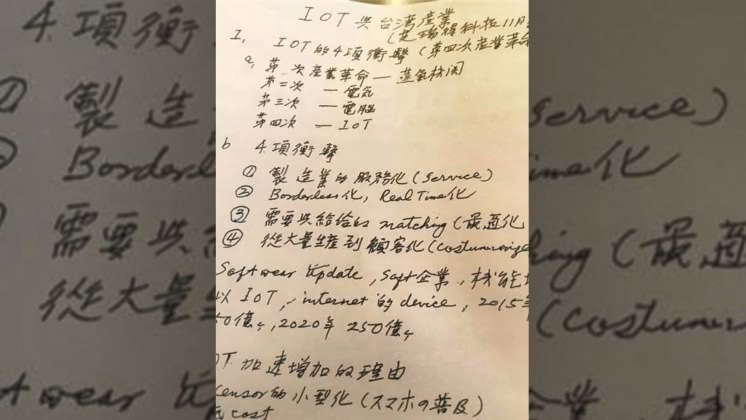 IOT與台湾産業
I, IOT的4項衝擊(第四次産業革命
a, 第一次産業革命 — 蒸気機関
第二次 — 電気
第三次 — 電脳
第四次 — IoT
b 4項衝擊
① 製造業的服務化(Service)
② Borderless化, Real Time化
③ 需要與給給的 matching(最適化
④ 從大量生産到顧客化(Costumerize
Softwear Update, Soft企業,
以IOT, internet的device, 2015年
50億ケ, 2020年 250億ケ
OT加速増加的理由
censor的小型化(スマホの普及)
cost